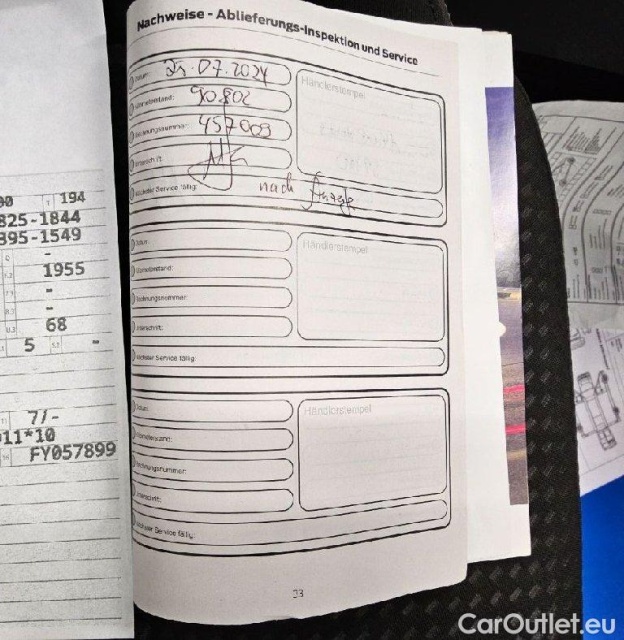 00 T 194
825-1844
395-1549
-
1955
-
-
68
5 -
7/-
11*10
FY057899
Nachweise - Ablieferungs-Inspektion und Service
Datum: 07.2024
Kilometerstand: 90.802
Rechnungsnummer: 457003
Unterschrift:
Nächster Service fällig: nach Anzeige
Händlerstempel
Datum:
Kilometerstand:
Rechnungsnummer:
Unterschrift:
Nächster Service fällig:
Händlerstempel
Datum:
Kilometerstand:
Rechnungsnummer:
Unterschrift:
Nächster Service fällig:
Händlerstempel
33
CarOutlet.eu